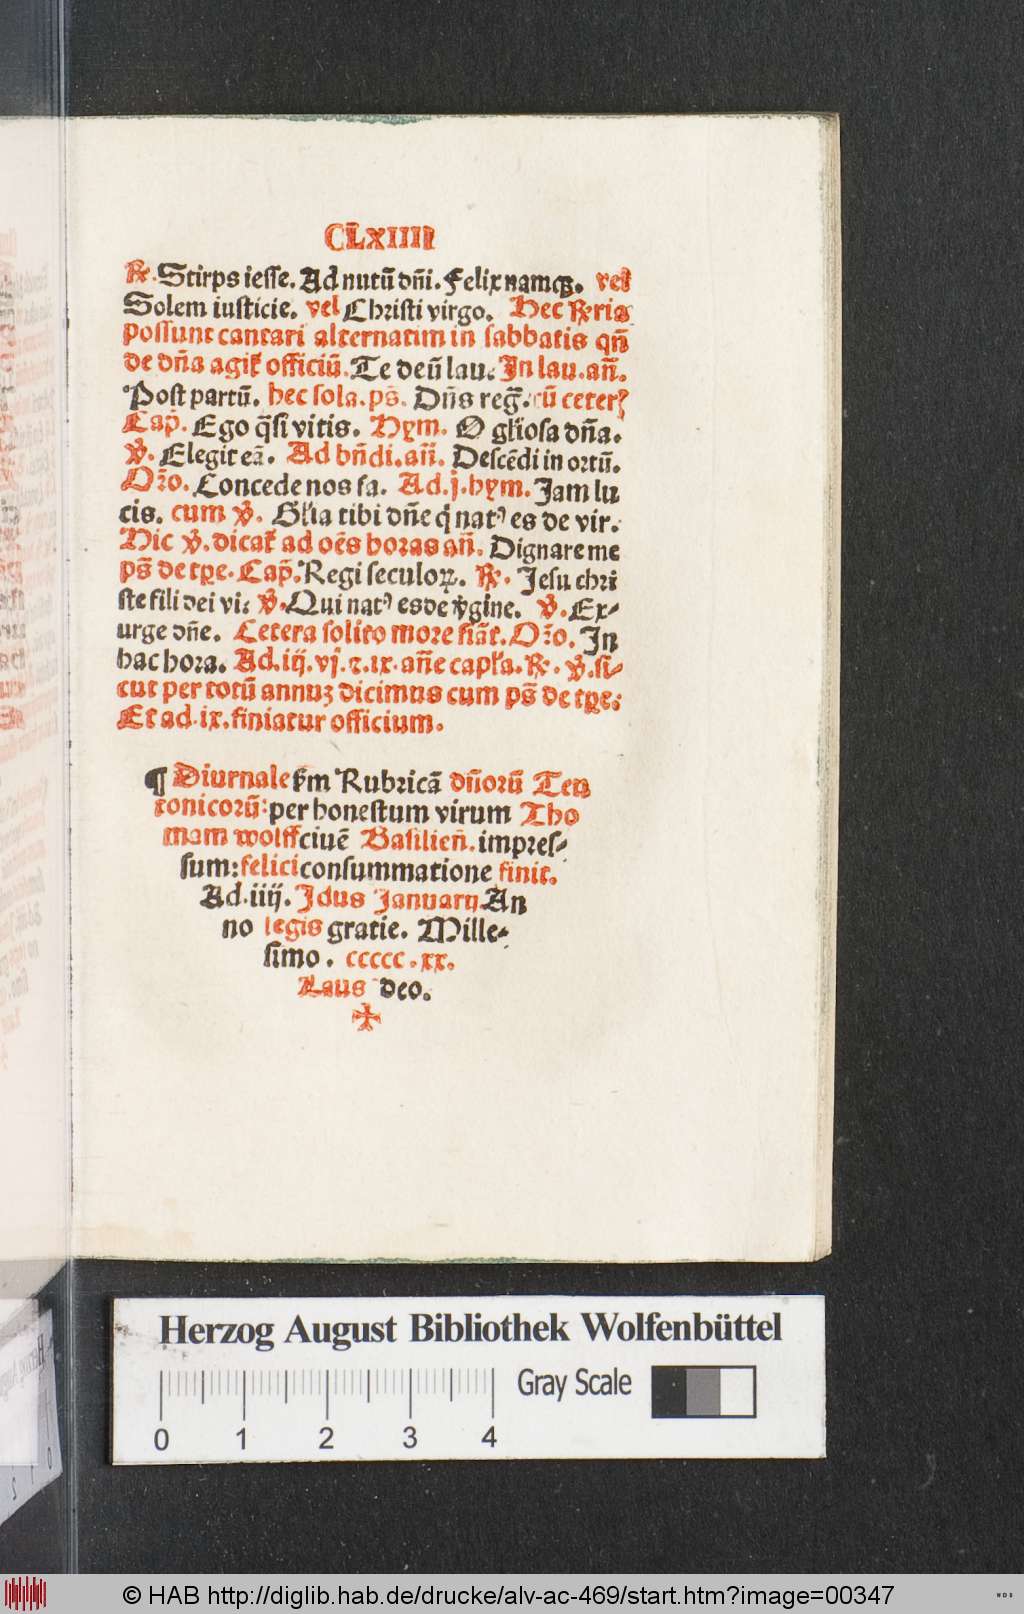 CLXIIII
℟. Stirps iesse. Ad nutū dn̄i. Felix namqȝ. vel
Solem iusticie. vel Christi virgo. Hec ℟ria
possunt cantari alternatim in sabbatis qn̄
de dn̄a agit᷑ officiū. Te deū lau. In lau. an̄.
Post partū. hec sola. ps̄. Dn̄s reḡ. cū ceterꝭ
Cap̄. Ego q̄si vitis. Hym. O gl̓iosa dn̄a.
℣. Elegit eā. Ad bn̄di. an̄. Descēdi in ortū.
Oꝛ̄o. Concede nos fa. Ad. j. hym. Jam lu
cis. cum ℣. Gl̓ia tibi dn̄e q̇ natꝰ es de vir.
Hic ℣. dicat᷑ ad oēs horas an̄. Dignare me
ps̄ de tꝑe. Cap̄. Regi seculoꝝ. ℟. Jesu chri
ste fili dei vi: ℣. Qui natꝰ es de v̓gine. ℣. Ex⸗
urge dn̄e. Cetera solito more fiāt. Oꝛ̄o. In
hac hora. Ad. iij. vj. ⁊. ix. an̄e capl̓a. ℟. ℣. si⸗
cut per totū annuȝ dicimus cum ps̄ de tꝑe:
Et ad. ix. finiatur officium.
¶ Diurnale ẜm Rubricā dn̄orū Teu
tonicorū: per honestum virum Tho
mam wolff ciuē Basilien̄. impres⸗
sum: felici consummatione finit.
Ad. iiij. Idus Januarij An
no legis gratie. Mille⸗
simo. ccccc. xx.
Laus deo.
✠
Herzog August Bibliothek Wolfenbüttel
Gray Scale
0 1 2 3 4
© HAB http://diglib.hab.de/drucke/alv-ac-469/start.htm?image=00347